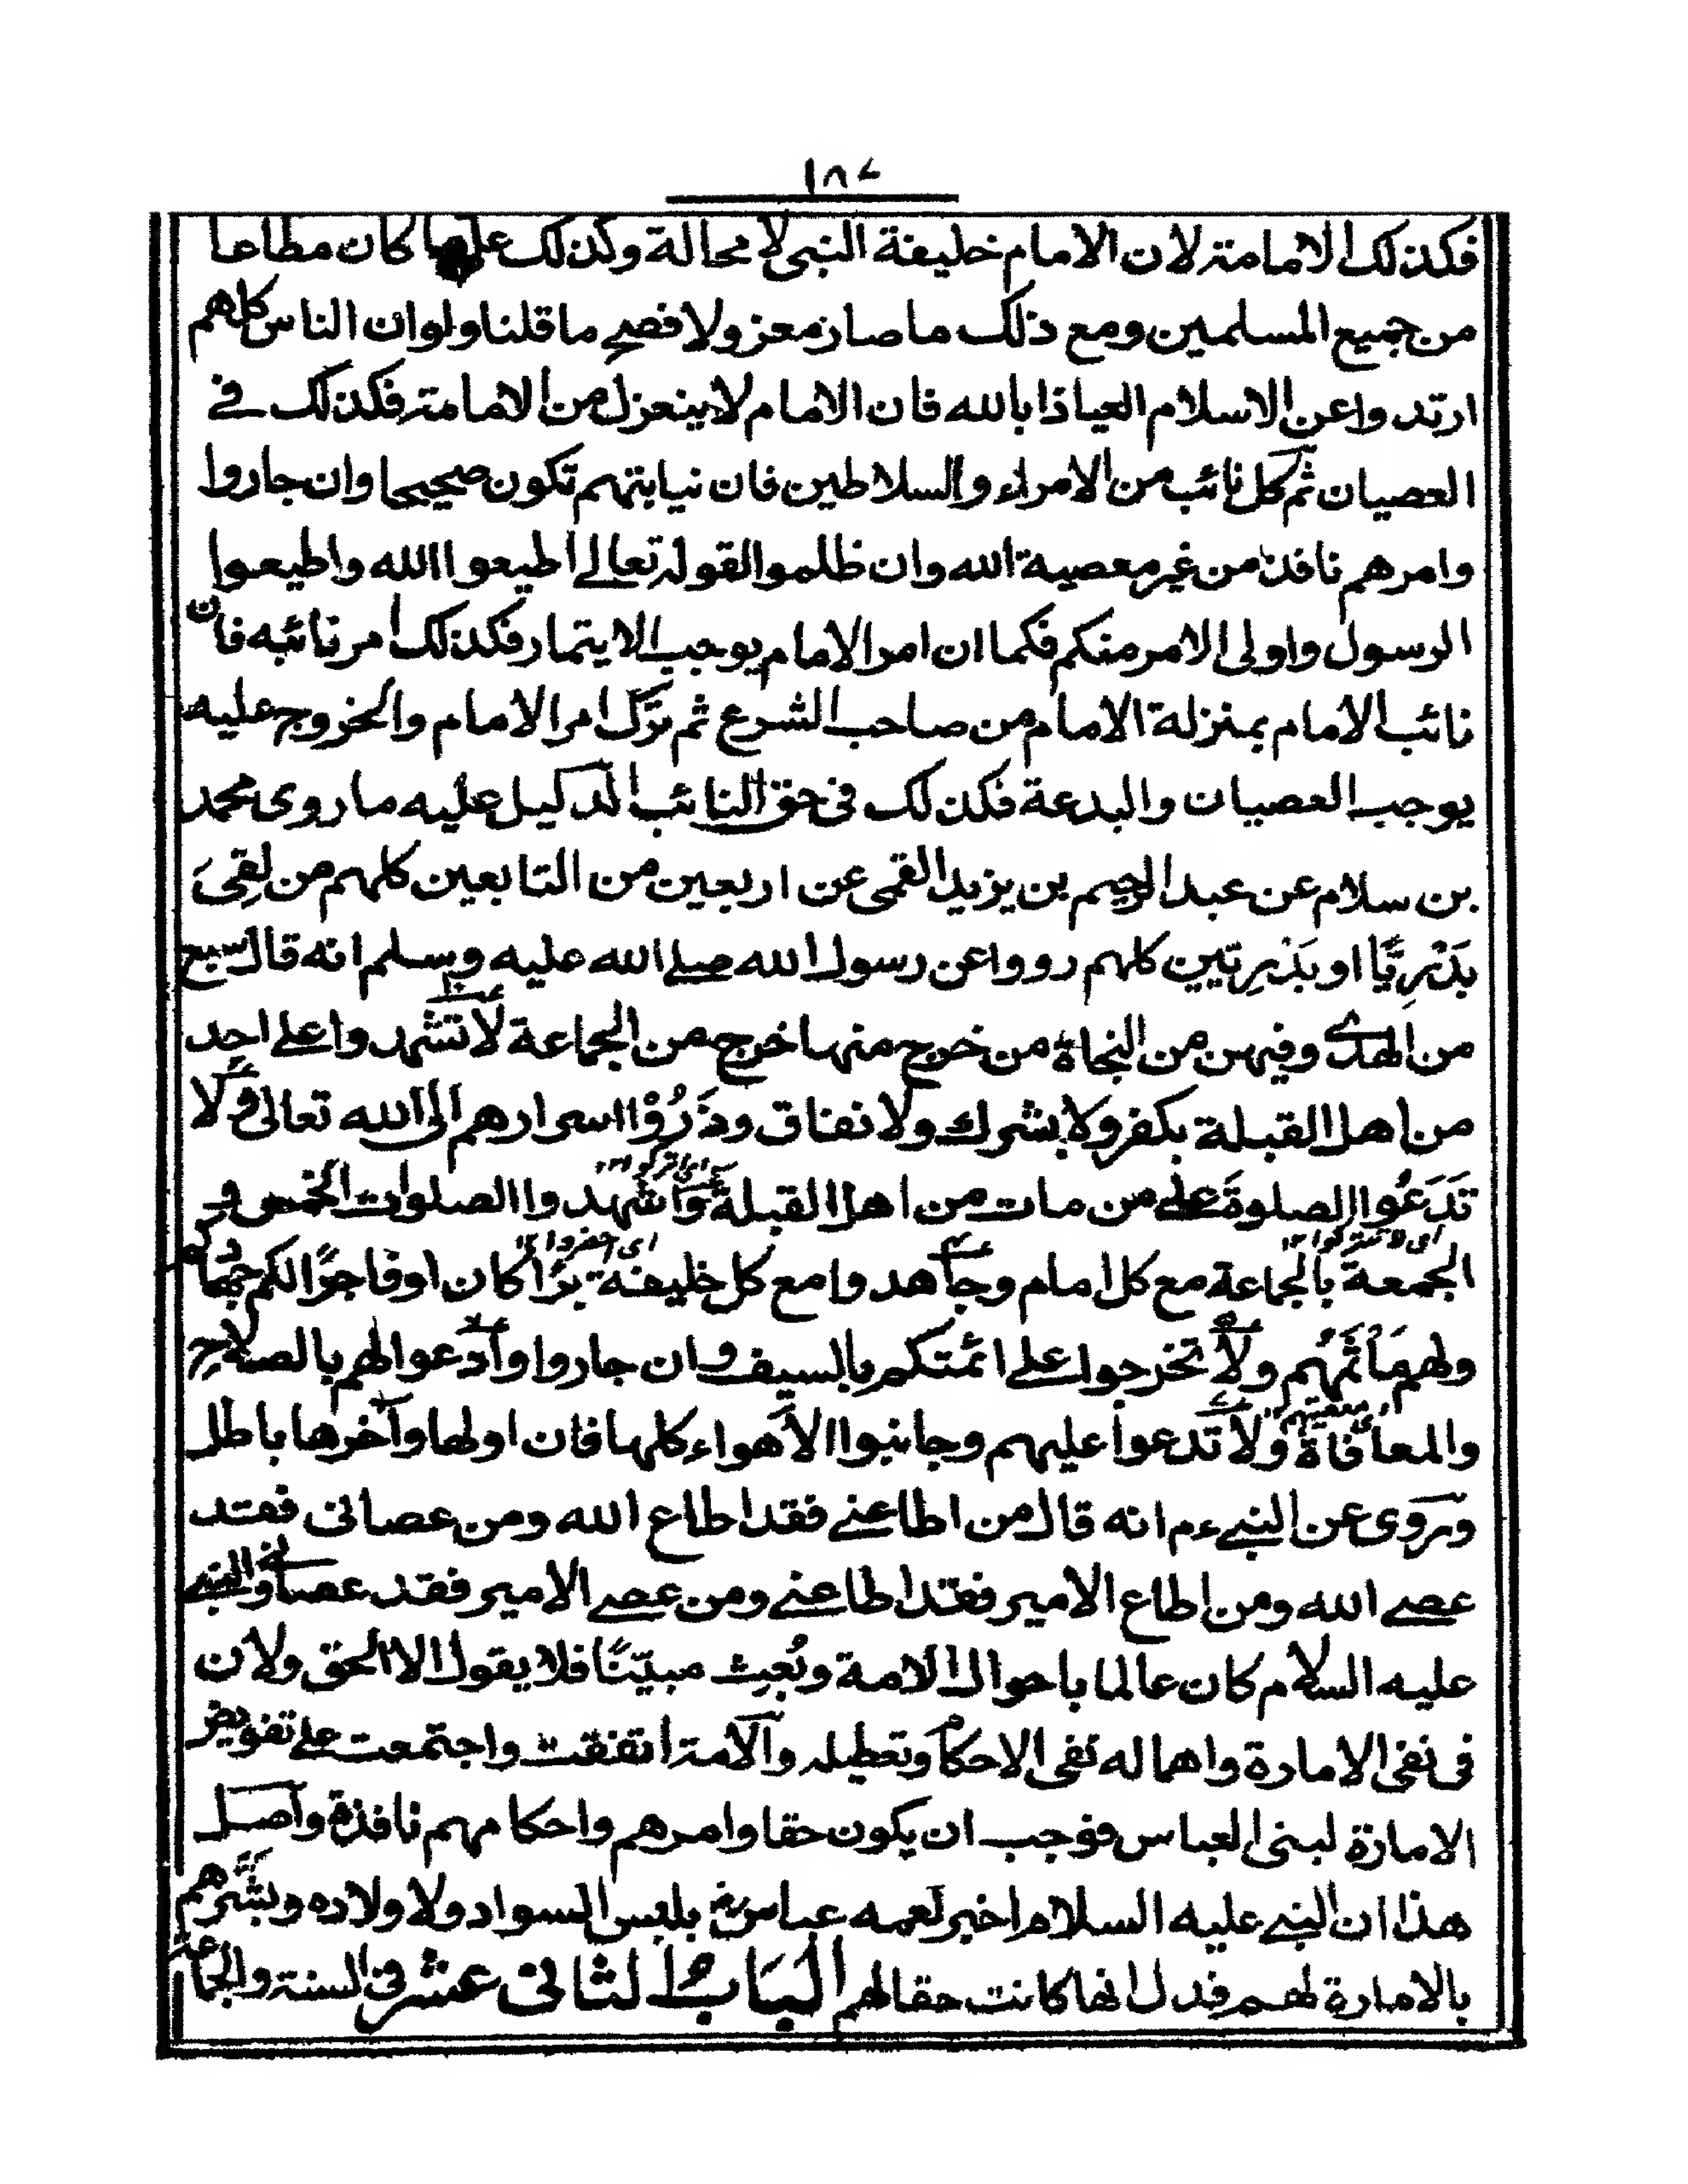 ١٨٤
فكذلك الامامة لان الامام خليفة النبى لا محالة وكذلك كان مطاعا
من جميع المسلمين ومع ذلك ما صار معزولا فصح ما قلنا ولو ان الناس كلهم
ارتدوا عن الاسلام العياذا بالله فان الامام لا ينعزل من الامامة فكذلك فے
العصيان ثم كل نائب من الامراء والسلاطين فان نيابتهم تكون صحيحا وان جاروا
وامرهم نافذ من غير معصية الله وان ظلموا لقوله تعالے اطيعوا الله واطيعوا
الرسول واولى الامر منكم فكما ان امر الامام يوجب الايتمار فكذلك امر نائبه فان
نائب الامام بمنزلة الامام من صاحب الشرع ثم ترك امر الامام والخروج عليه
يوجب العصيان والبدعة فكذلك فى حق النائب الدليل عليه ما روى محمد
بن سلام عن عبد الرحيم بن يزيد القمى عن اربعين من التابعين كلهم من لقِىَ
بَدْرِيًّا او بَدْرِيّين كلهم رووا عن رسول الله صلے الله عليه وسلم انه قال سبع
من الهدے وفيهن من النجاة من خرج منها خرج من الجماعة لا تشهدوا على احد
من اهل القبلة بكفر ولا بشرك ولا نفاق وذَرُوْا اسرارهم الى الله تعالى ولا
اى اتركوا ١٢
تَدَعُوا الصلوةَ علے من مات من اهل القبلة واشهدوا الصلوات الخمس و
اى لا تتركوا ١٢ اى احضروا ١٢
الجمعة بالجماعة مع كل امام وجاهدوا مع كل خليفة برًّا كان او فاجرًا لكم جهادكم
ولهم مَأْثَمُهُم ولا تخرجوا على ائمتكم بالسيف وان جاروا وادعوا لهم بالصلاح
والمعافاة ولا تدعوا عليهم وجانبوا الاهواء كلها فان اولها وآخرها باطل
وَرَوى عن النبے ءم انه قال من اطاعنے فقد اطاع الله ومن عصانى فقد
عصے الله ومن اطاع الامير فقد اطاعنے ومن عصے الامير فقد عصانى والنبے
عليه السلام كان عالما باحوال الامة وبُعِث مبيّنًا فلا يقول الا الحق ولان
فى نفى الامارة واهماله نفى الاحكام وتعطيله والامة اتفقت واجتمعت علے تفويض
الامارة لبنى العباس فوجب ان يكون حقا وامرهم واحكامهم نافذة واصل
هذا ان النبے عليه السلام اخبر لعمه عباس رض بلبس السواد ولاولاده وبَشَّرهم
بالامارة لهم فدل انها كانت حقا لهم البَابُ الثانى عشر فى السنة والجماعة